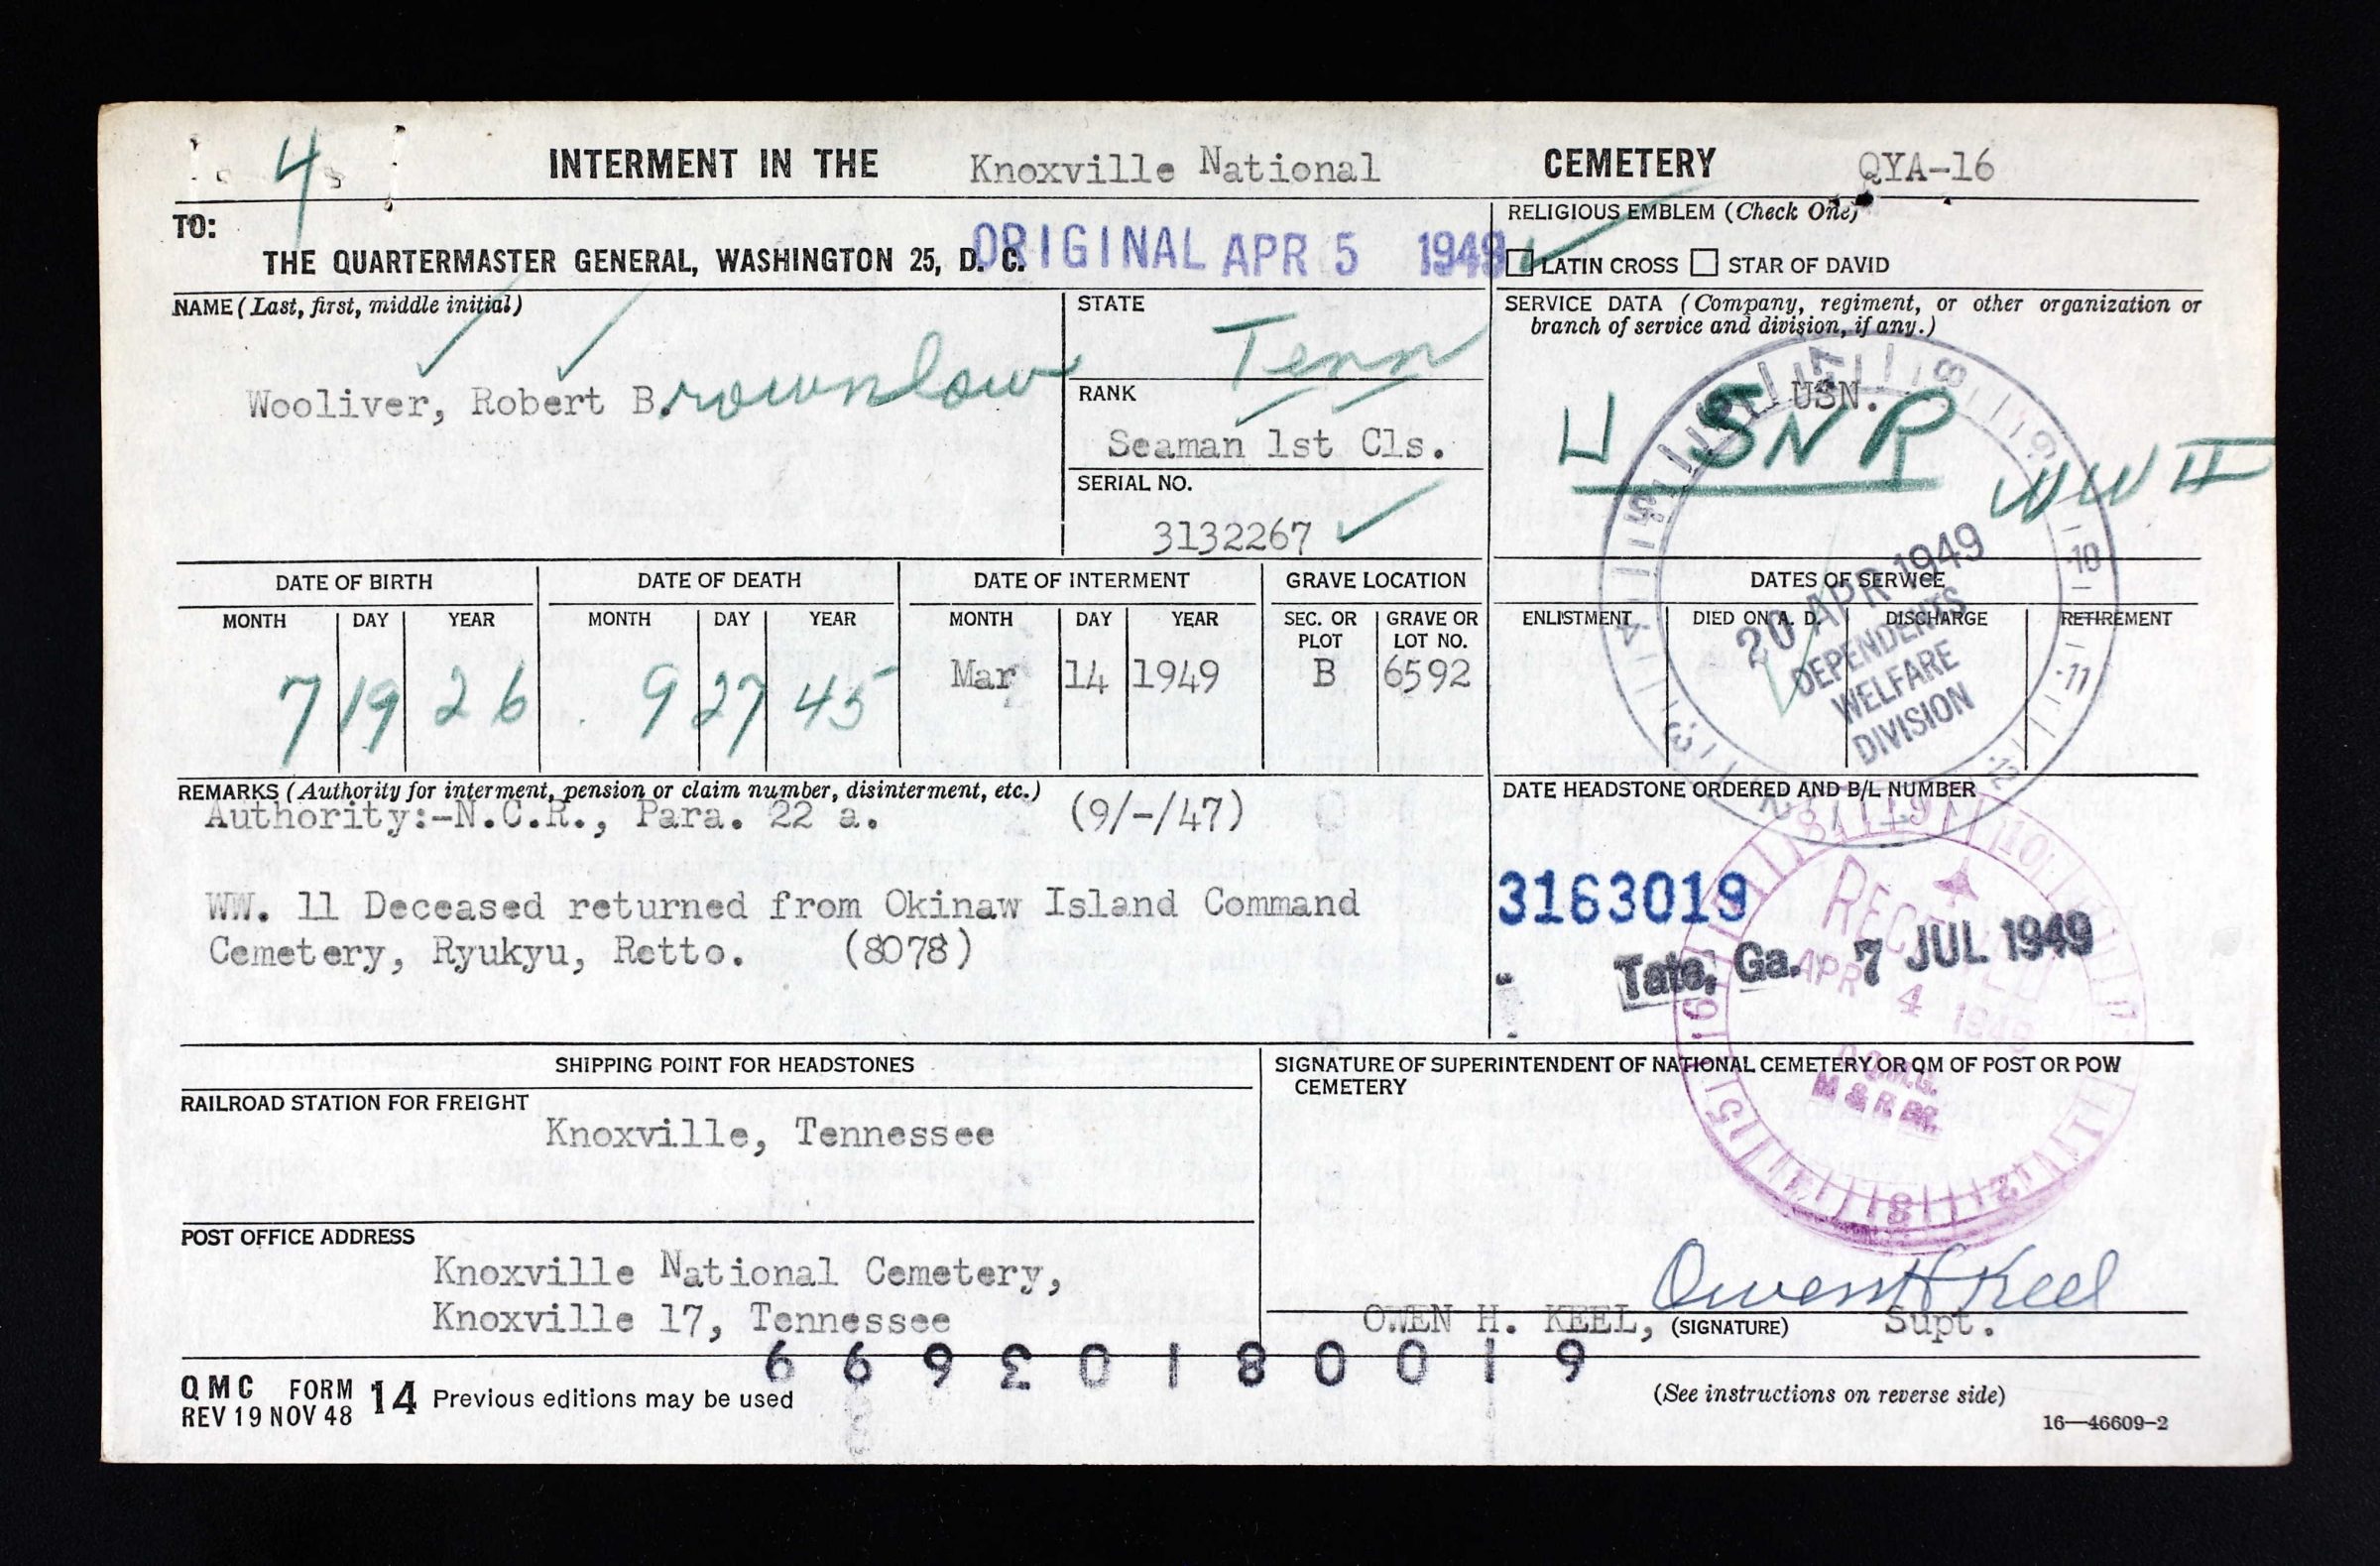 4
INTERMENT IN THE Knoxville National CEMETERY QYA-16
TO:
THE QUARTERMASTER GENERAL, WASHINGTON 25, D. C.
ORIGINAL APR 5 1949
RELIGIOUS EMBLEM (Check One)
LATIN CROSS STAR OF DAVID
NAME (Last, first, middle initial)
Wooliver, Robert B.rownlow
STATE
Tenn
RANK
Seaman 1st Cls.
SERIAL NO.
3132267
SERVICE DATA (Company, regiment, or other organization or
branch of service and division, if any.)
USN.
USNR
WW II
20 APR 1949
DEPENDENTS
WELFARE
DIVISION
DATE OF BIRTH DATE OF DEATH DATE OF INTERMENT GRAVE LOCATION DATES OF SERVICE
MONTH DAY YEAR MONTH DAY YEAR MONTH DAY YEAR SEC. OR PLOT GRAVE OR LOT NO. ENLISTMENT DIED ON A. D. DISCHARGE RETIREMENT
7 19 26 9 27 45 Mar 14 1949 B 6592
REMARKS (Authority for interment, pension or claim number, disinterment, etc.)
Authority:-N.C.R., Para. 22 a. (9/-/47)
WW. 11 Deceased returned from Okinaw Island Command
Cemetery, Ryukyu, Retto. (8078)
DATE HEADSTONE ORDERED AND B/L NUMBER
3163019
Tate, Ga. 7 JUL 1949
RECEIVED
APR 4 1949
O.Q.M.G.
M & R BR.
SHIPPING POINT FOR HEADSTONES
RAILROAD STATION FOR FREIGHT
Knoxville, Tennessee
POST OFFICE ADDRESS
Knoxville National Cemetery,
Knoxville 17, Tennessee
SIGNATURE OF SUPERINTENDENT OF NATIONAL CEMETERY OR QM OF POST OR POW
CEMETERY
Owen H Keel
OWEN H. KEEL, (SIGNATURE) Supt.
61008103699
QMC FORM 14 Previous editions may be used
REV 19 NOV 48
(See instructions on reverse side)
16—46609-2